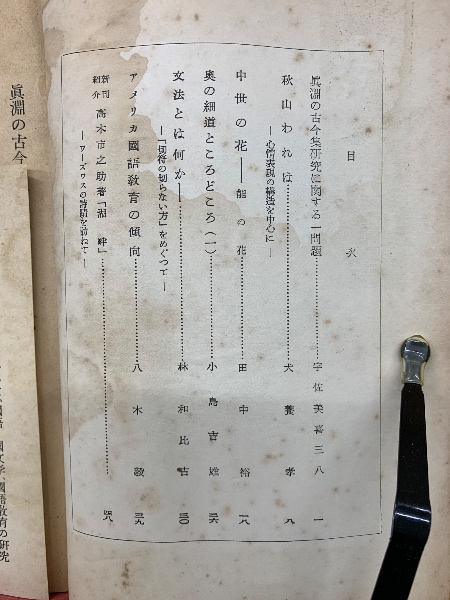 目次
眞淵の古今集研究に関する一問題………宇佐美喜三八 一
秋山われは………犬養孝 八
―心情表現の構造を中心に―
中世の花――能の花………田中裕 一八
奥の細道ところどころ（一）………小島吉雄 二六
文法とは何か――………林和比古 三〇
―「切符の切らない方」をめぐつて―
アメリカ國語教育の傾向………八木毅 三九
新刊紹介 高木市之助著「湖畔」………四八
―ワーズワスの詩蹟を訪ねて―
眞淵の古今
國文学、國語教育の研究